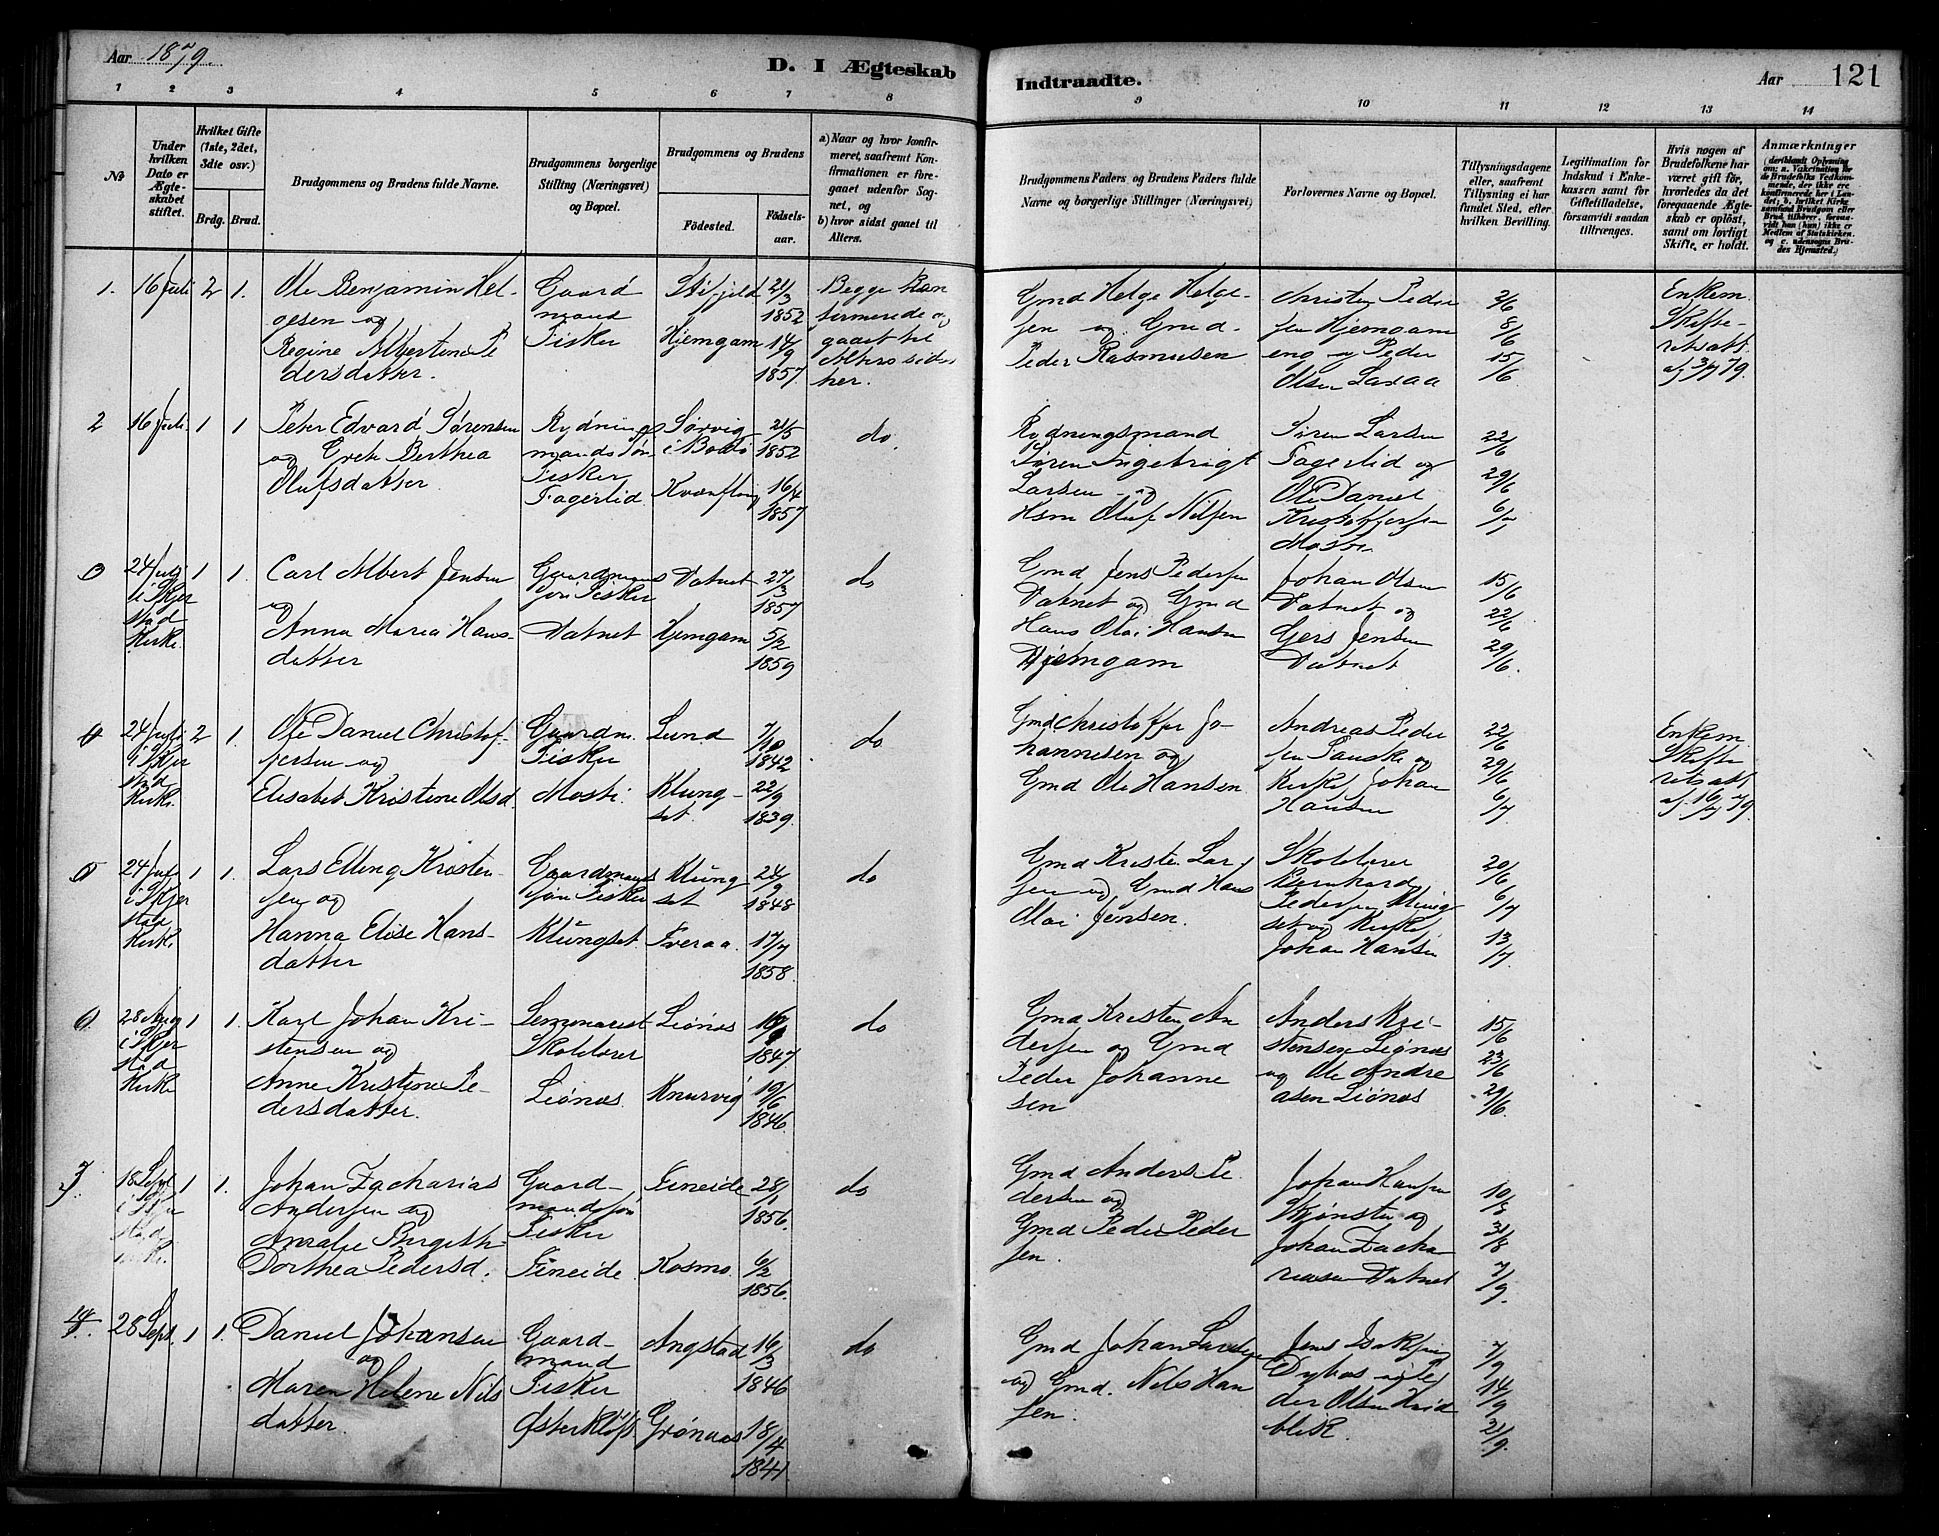 Aar 1879.
D. I Ægteskab
Indtraadte.
Aar 121
1 2 3 4 5 6 7 8 9 10 11 12 13 14
No
Under hvilken Dato er Ægteskabet stiftet.
Hvilket Gifte (1ste, 2det, 3die osv.)
Brdg. Brud.
Brudgommens og Brudens fulde Navne.
Brudgommens borgerlige Stilling (Næringsvei) og Bopæl.
Brudgommens og Brudens
Fødested.
Fødselsaar.
a) Naar og hvor konfirmeret, saafremt Konfirmationen er foregaaet udenfor Sognet, og
b) hvor sidst gaaet til Alters.
Brudgommens Faders og Brudens Faders fulde Navne og borgerlige Stillinger (Næringsvei)
Forlovernes Navne og Bopæl.
Tillysningsdagene eller, saafremt Tillysning ei har fundet Sted, efter hvilken Bevilling.
Legitimation for Indskud i Enkekassen samt for Giftetilladelse, forsaavidt saadan tiltrænges.
Hvis nogen af Brudefolkene har været gift før, hvorledes da det foregaaende Ægteskab er opløst, samt om lovligt Skifte, er holdt.
Anmærkninger
1. 16 Juli 2 1.
Ole Benjamin Helgesen og
Regine Albertine Pedersdatter.
Gaardmand Fisker
21/3 1852
Hjemgam 14/9 1857
Begge konfirmerede og gaaet til Alters sidst her.
Gmd Helge Helgesen og Gmd Peder Rasmusen
Christen Pedersen Hjemgam eng og Peder Olsen Laxaa
2/6 8/6 15/6
Enkem. Skifteretsatt. af 3/7 79.
2 16 Juli 1 1
Peter Edvard Sørensen og Grete Berthea Olufsdatter.
Rydningsmands Søn Fisker Fagerlid
Sørvig i Bodø 21/5 1852
Kvænflog 16/4 1857
do.
Rydningsmand Søren Ingebrigt Larsen og Hsm Oluf Nilsen
Søren Larsen Fagerlid og Ole Daniel Kristoffersen Mosti
22/6 29/6 6/7
3 24 Juli i Skjerstad Kirke 1 1.
Carl Albert Jensen og Anna Maria Hansdatter
Gaardmands Søn Fisker Vatnet
Vatnet 27/3 1857
Hjemgam 5/2 1859
do
Gmd Jens Pedersen Vatnet og Gmd Hans Olai Hansen Hjemgam
Johan Olsen Vatnet og Gers Jensen Vatnet
15/6 22/6 29/6.
4 24 Juli i Skjerstad Kirke 2 1.
Ole Daniel Christoffersen og
Elisabet Kristine Olsd
Gaardm. Fisker Mosti.
Lund 7/10 1842
Klungset. 22/9 1839.
do
Gmd Christoffer Johannesen og Gmd Ole Hansen
Andreas Pedersen Fauske og Kirkes. Johan Hansen
22/6 29/6 6/7
Enkem Skifteretsatt af. 16/7 79.
5 24 Juli i Skjerstad Kirke 1 1.
Lars Elling Kristensen og
Hanna Elise Hansdatter
Gaardmands søn Fisker Klungset.
Klungset 24/9 1848
Tveraa. 17/7 1858.
do
Gmd Kristen Larsen og Gmd Hans Olai Jensen.
Skolelærer Bernhard Pedersen Klungset og Kirkes. Johan Hansen
20/6 6/7 13/7
6. 28 Aug i Skjerstad Kirke 1 1.
Karl Johan Kristensen og
Anne Kristine Pedersdatter.
Seminarist Skolelærer Leønæs.
Leønæs 1847.
Knarvig 19/6 1846.
do
Gmd Kristen Andersen og Gmd Peder Johannesen
Anders Kristensen Leønæs og Ole Andreasen Leiønæs
15/6 23/6 29/6.
7. 18 Sept i Skjerstad Kirke. 1 1.
Johan Zacharias Andersen og
Amalie Birgith. Dorthea Pedersd.
Gaardmandssøn Fisker Fineide.
Fineide 28/1 1856.
Kosmo. 6/2 1856.
do
Gmd Anders Pedersen og Gmd Peder Pedersen.
Johan Hansen Skjønstu og Johan Zachariasen Vatnet
31/8 7/9.
8. 28 Sept. 1 1.
Daniel Johansen og
Maren Helene Nilsdatter.
Gaardmand Fisker Østerkløft.
Angstad 16/3 1846
Grønaas 18/4 1841.
do
Gmd Johan og Gmd. Nils Hansen.
Jens Isaksen og Peder Olsen Hvidblik.
7/9 14/9 21/9.